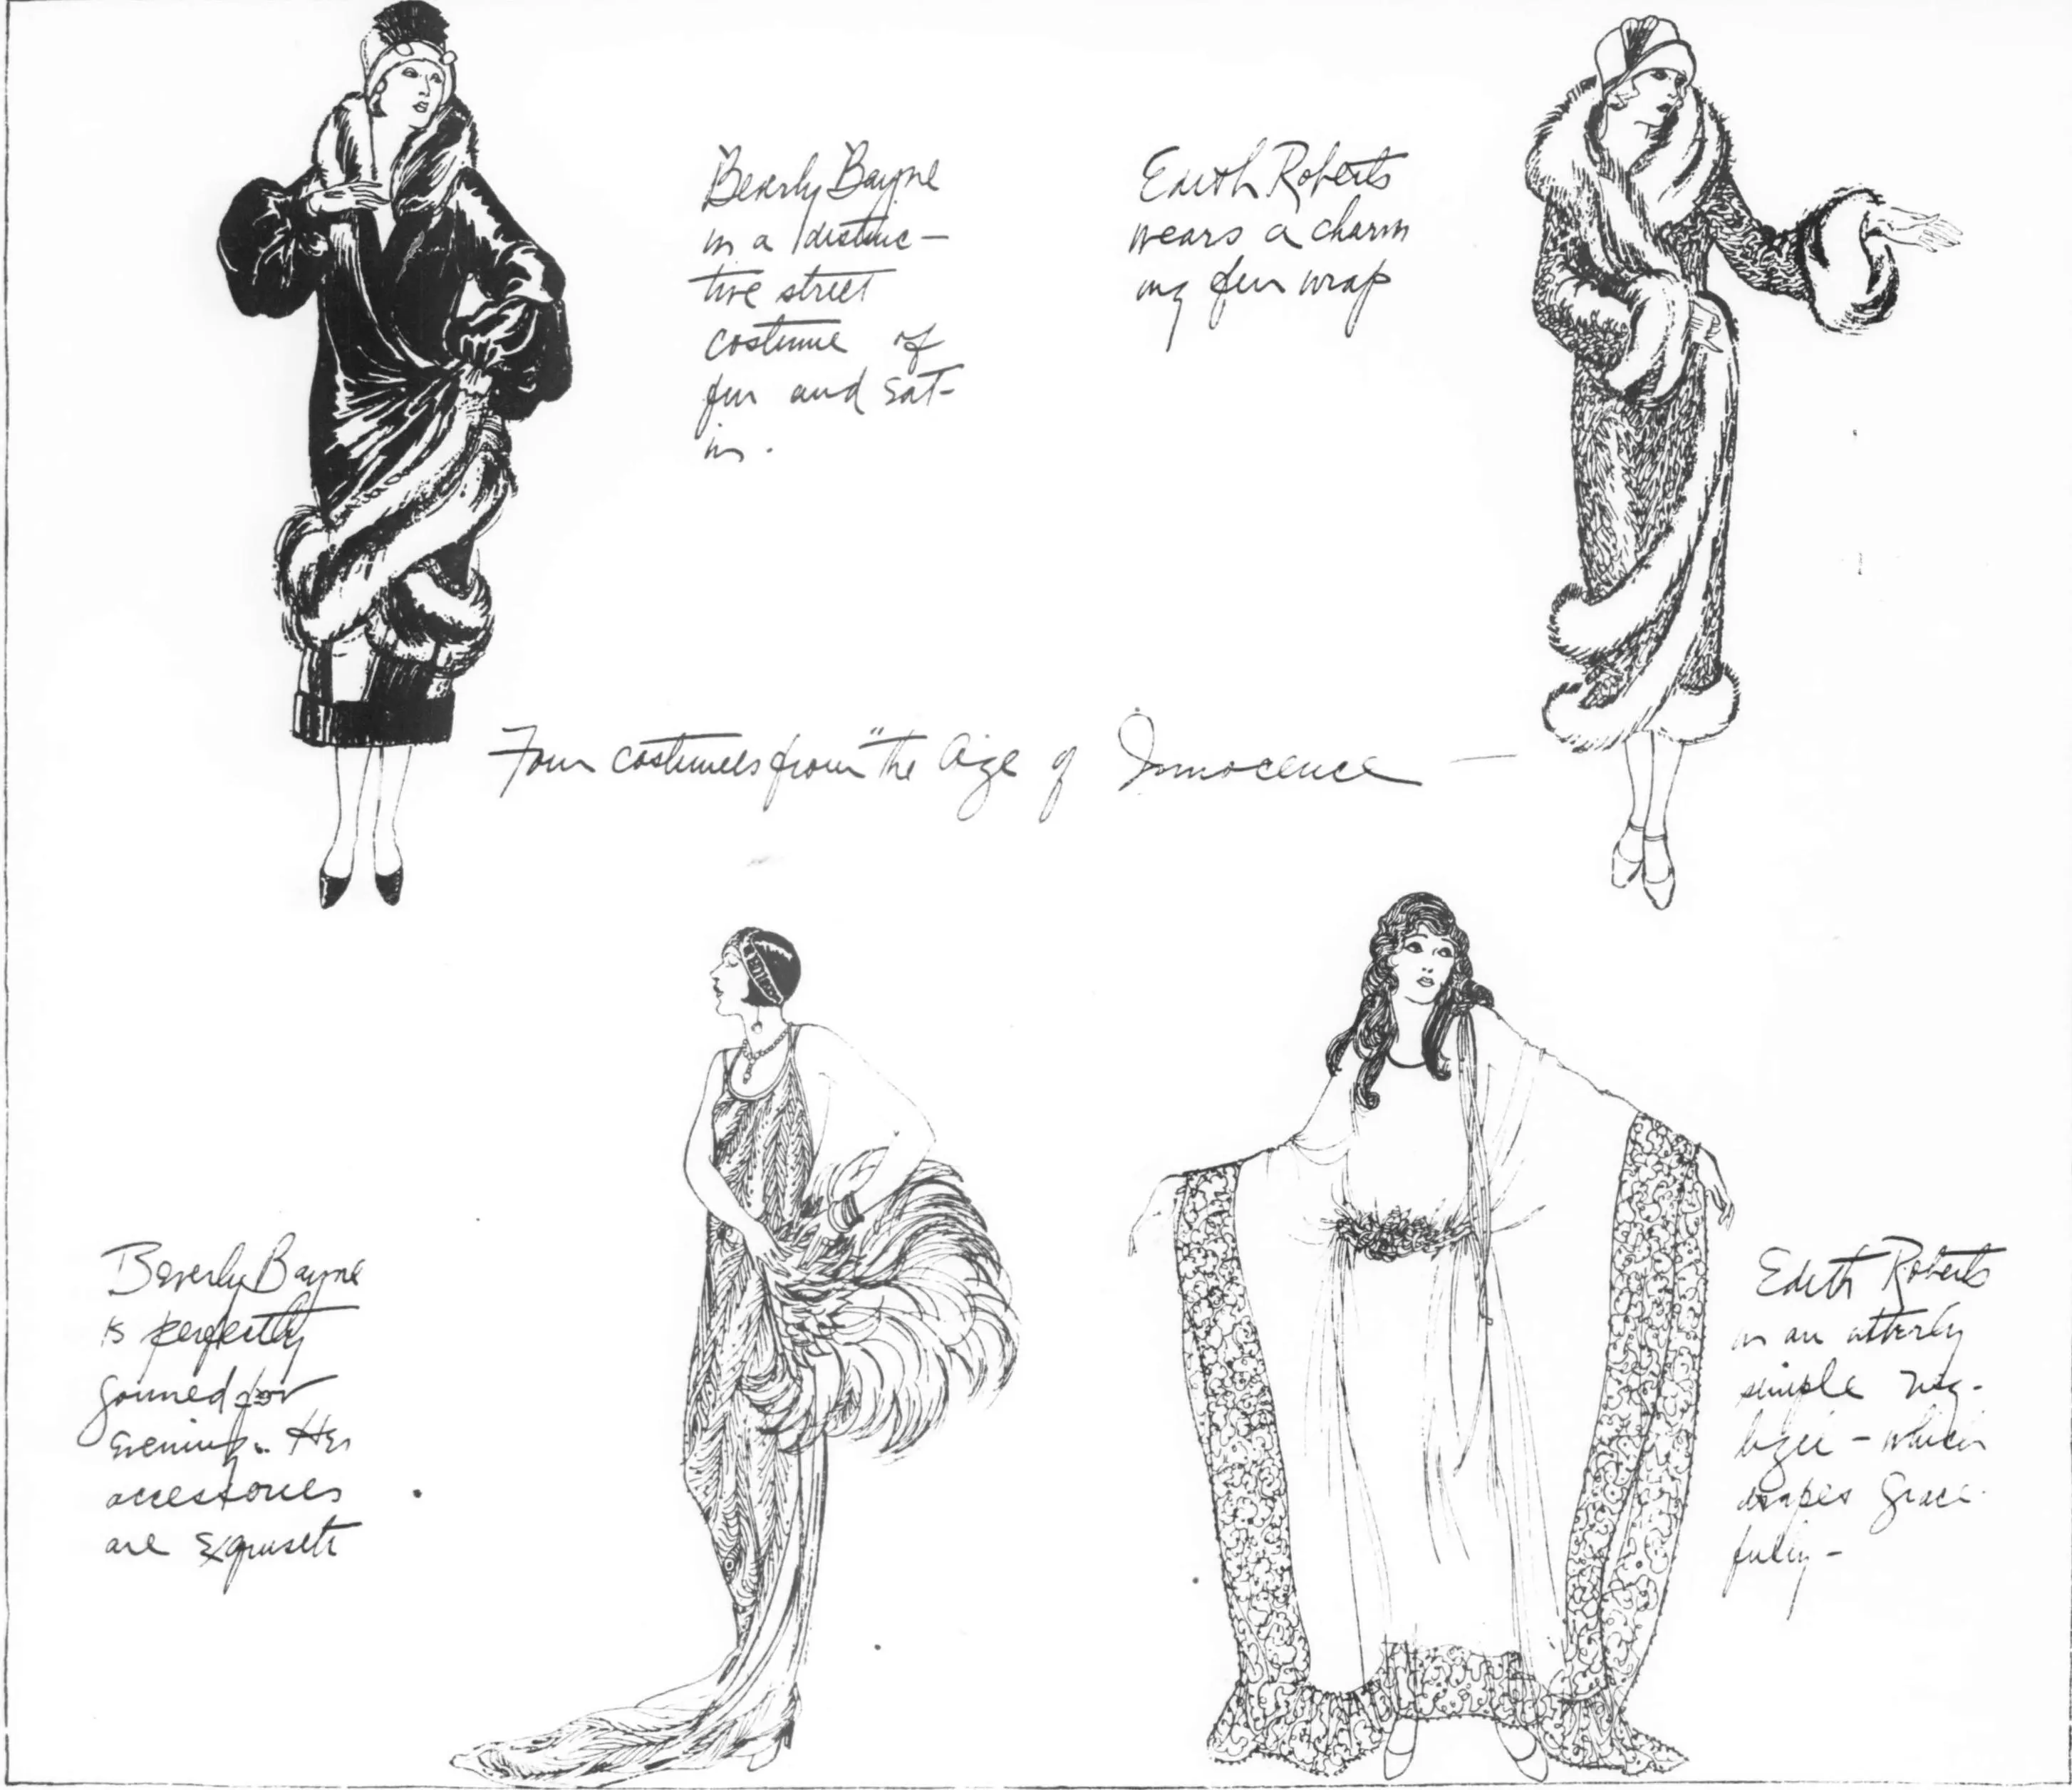 Beverly Bayne
in a distinc-
tive street
costume of
fur and sat-
in.
Edith Roberts
wears a charm
ing fur wrap
Four costumes from "the Age of Innocence —
Beverly Bayne
is perfectly
gowned for
evening. Her
accessories
are exquisite
Edith Roberts
in an utterly
simple neg-
ligee - which
drapes grace-
fully -